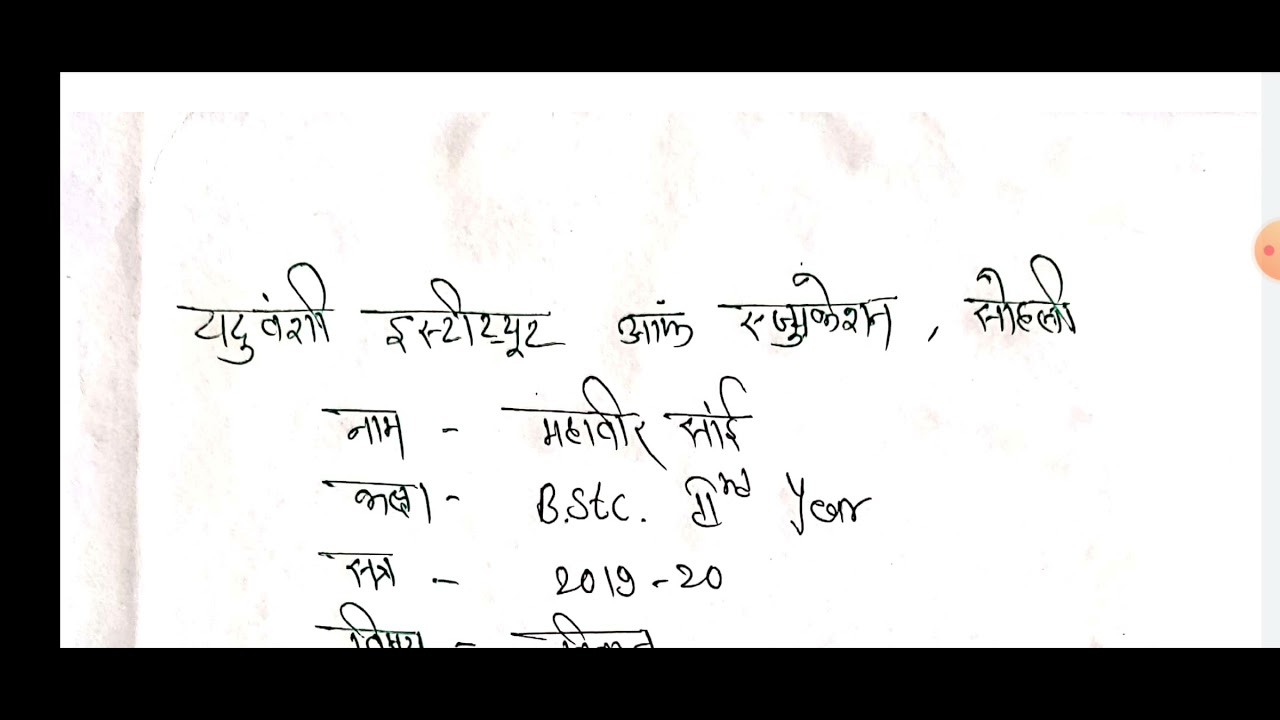 यदुवंशी इस्टीट्यूट ऑफ एज्युकेशन, सोहली
नाम - महावीर सांई
कक्षा - B.Stc. IInd Year
सत्र - 2019-20
विषय -